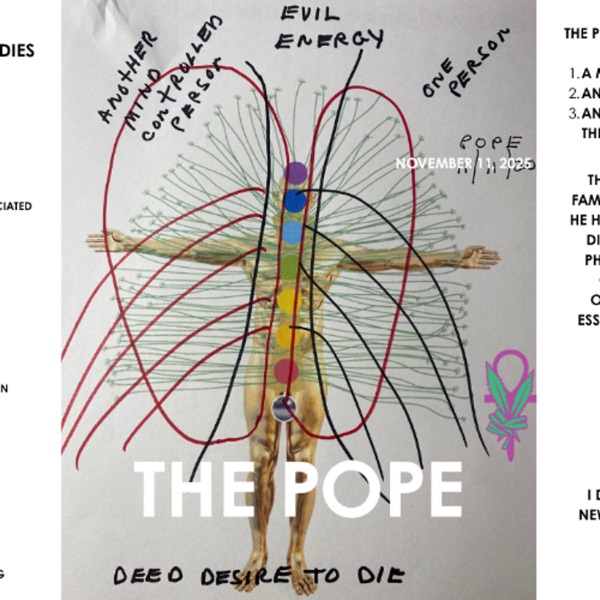 DIES
CIATED
N
G
ANOTHER
MIND
CONTROLLED
PERSON
EVIL
ENERGY
ONE
PERSON
POPE
NOVEMBER 11, 2025
THE POPE
DEED DESIRE TO DIE
THE P
1. A M
2. AN
3. AN
THE
TH
FAM
HE H
DI
PH
O
ESS
I D
NEW